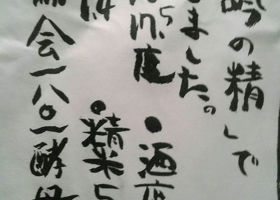 の精」で
ました。
●酒度
●精米
会一八〇一酵母